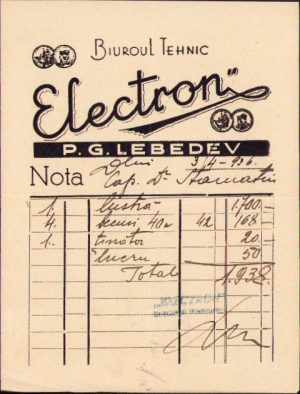 BIUROUL TEHNIC
Electron"
P. G. LEBEDEV
Dlui 3/4-936.
Nota Cap. Dr Stamatiu
1. lustră 1.700.-
4. becuri 40w 42 168.-
1. 20.-
lucru 50.-
Total 1.938.-
"ELECTRON"